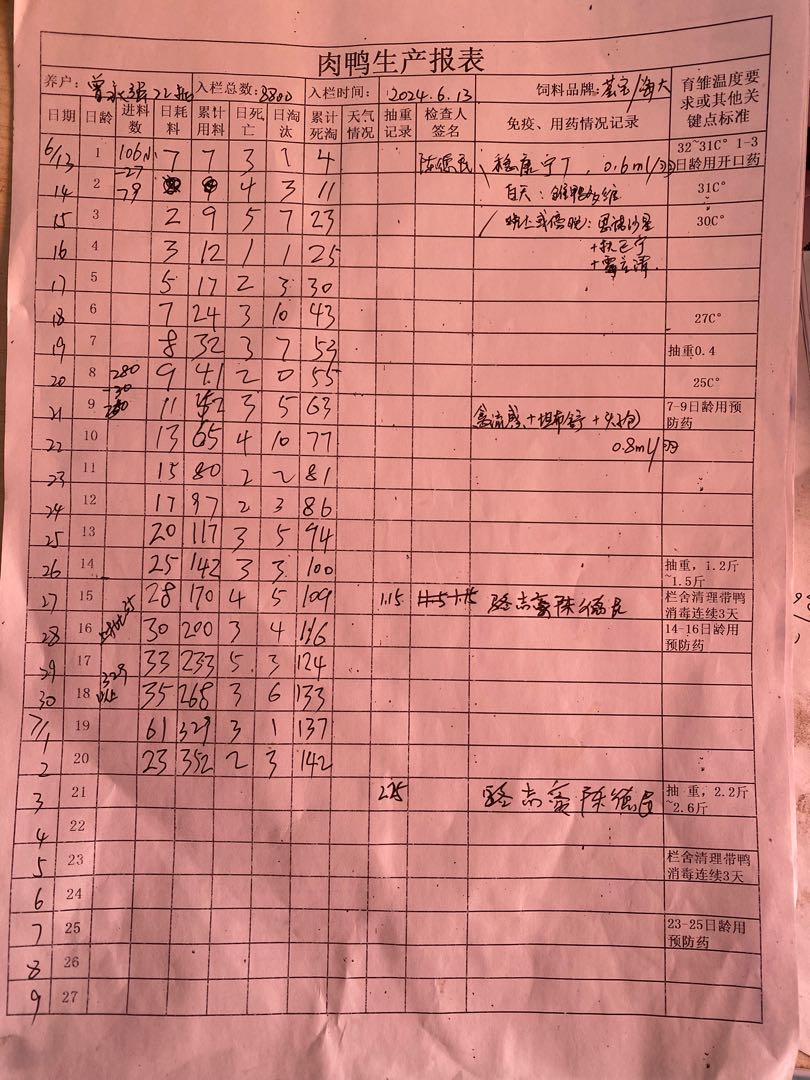 肉鸭生产报表
养户: 入栏总数:8800 入栏时间: 2024.6.13 饲料品牌: /海大 育雏温度要求或其他关键点标准
日期 日龄 进料数 日耗料 累计用料 日死亡 日淘汰 累计死淘 天气情况 抽重记录 检查人签名 免疫、用药情况记录
6/13 1 106 7 7 3 1 4 0.6ml/羽 32~31C° 1-3日龄用开口药
14 2 79 4 3 11 白天: 31C°
15 3 2 9 5 7 23 30C°
16 4 3 12 1 1 25
17 5 5 17 2 3 30
18 6 7 24 3 10 43 27C°
19 7 8 32 3 7 53 抽重0.4
20 8 280 9 41 2 0 55 25C°
21 9 11 52 3 5 63 禽流感+坦布舒+头孢 7-9日龄用预防药
22 10 13 65 4 10 77 0.8ml/羽
23 11 15 80 2 2 81
24 12 17 97 2 3 86
25 13 20 117 3 5 94
26 14 25 142 3 3 100 抽重,1.2斤~1.5斤
27 15 28 170 4 5 109 1.15 栏舍清理带鸭消毒连续3天
28 16 30 200 3 4 116 14-16日龄用预防药
29 17 33 233 5 3 124
30 18 35 268 3 6 133
7/1 19 61 329 3 1 137
2 20 23 352 2 3 142
3 21 2.25 抽重,2.2斤~2.6斤
4 22
5 23 栏舍清理带鸭消毒连续3天
6 24
7 25 23-25日龄用预防药
8 26
9 27